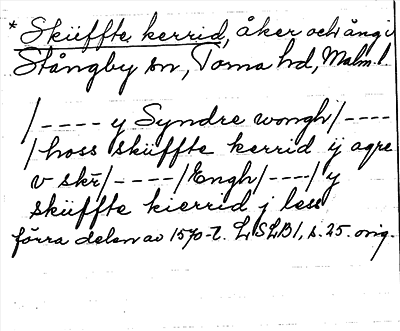 * Sküffte kerrid, åker och äng i
Stångby sn, Torna hd, Malm. l.
/---- y Syndre wongh/----
/hoss sküffte kerrid ij agre
v skr̄/----/Engh/----/y
sküffte kierrid j less
förra delen av 1570-t. LSLB1, s. 25. orig.